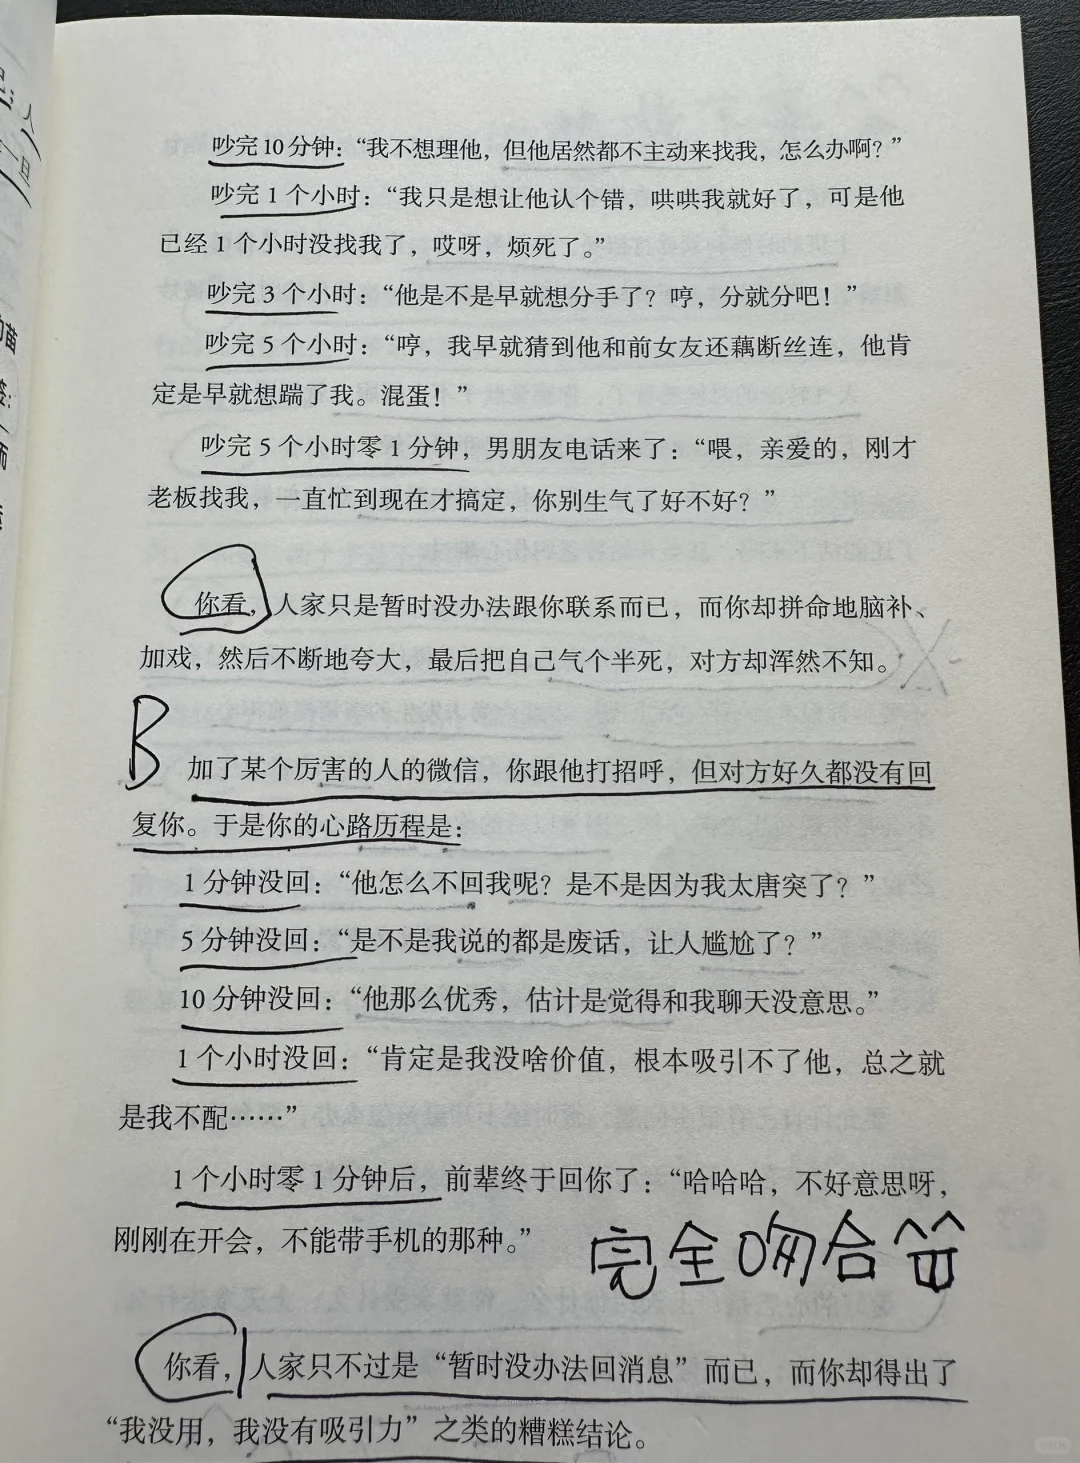 吵完10分钟：“我不想理他，但他居然都不主动来找我，怎么办啊？”
吵完1个小时：“我只是想让他认个错，哄哄我就好了，可是他
已经1个小时没找我了，哎呀，烦死了。”
吵完3个小时：“他是不是早就想分手了？哼，分就分吧！”
吵完5个小时：“哼，我早就猜到他和前女友还藕断丝连，他肯
定是早就想踹了我。混蛋！”
吵完5个小时零1分钟，男朋友电话来了：“喂，亲爱的，刚才
老板找我，一直忙到现在才搞定，你别生气了好不好？”
你看，人家只是暂时没办法跟你联系而已，而你却拼命地脑补、
加戏，然后不断地夸大，最后把自己气个半死，对方却浑然不知。
B
加了某个厉害的人的微信，你跟他打招呼，但对方好久都没有回
复你。于是你的心路历程是：
1分钟没回：“他怎么不回我呢？是不是因为我太唐突了？”
5分钟没回：“是不是我说的都是废话，让人尴尬了？”
10分钟没回：“他那么优秀，估计是觉得和我聊天没意思。”
1个小时没回：“肯定是我没啥价值，根本吸引不了他，总之就
是我不配……”
1个小时零1分钟后，前辈终于回你了：“哈哈哈，不好意思呀，
刚刚在开会，不能带手机的那种。”
完全吻合
你看，人家只不过是“暂时没办法回消息”而已，而你却得出了
“我没用，我没有吸引力”之类的糟糕结论。